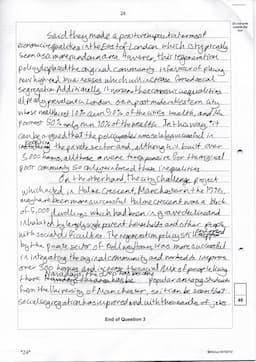 24
Said they made a positive
economic qualities in the East of London which is typically
seen as a more rundown area. However, this regeneration
policy displaced the original community in favour of placing
new high end businesses which will increase forced social
segregation. Additionally, it worsens the economic inequalities
already prevalent in London as a post modern Western city
whose wealthiest 10% own of the cities wealth and the
poorest 50% only own 10% of the wealth. In this way, it
can be argued that the policy makers were only successful in
the private sector and, although it built over
5,000 homes, all those were too expensive for the original
poor community so only reinforced their inequalities.
On the other hand, the City Challenge project
which acted in Hulme Crescent, Manchester in the 1990s
might have been more successful. Hulme Crescent was a block
of 5,000 dwellings which had been in grave decline and
inhabited by largely single parent households and other people
with social difficulties. The regeneration policy still
by the private sector of Bellway homes was more successful
in integrating the original community and worked to improve
over 500 homes and increase the social mix of people living
there. Nowadays, the area has become
popular among students
from the University of Manchester, so it can be seen that
social segregation has improved and with thousands of jobs
End of Question 3
*24*